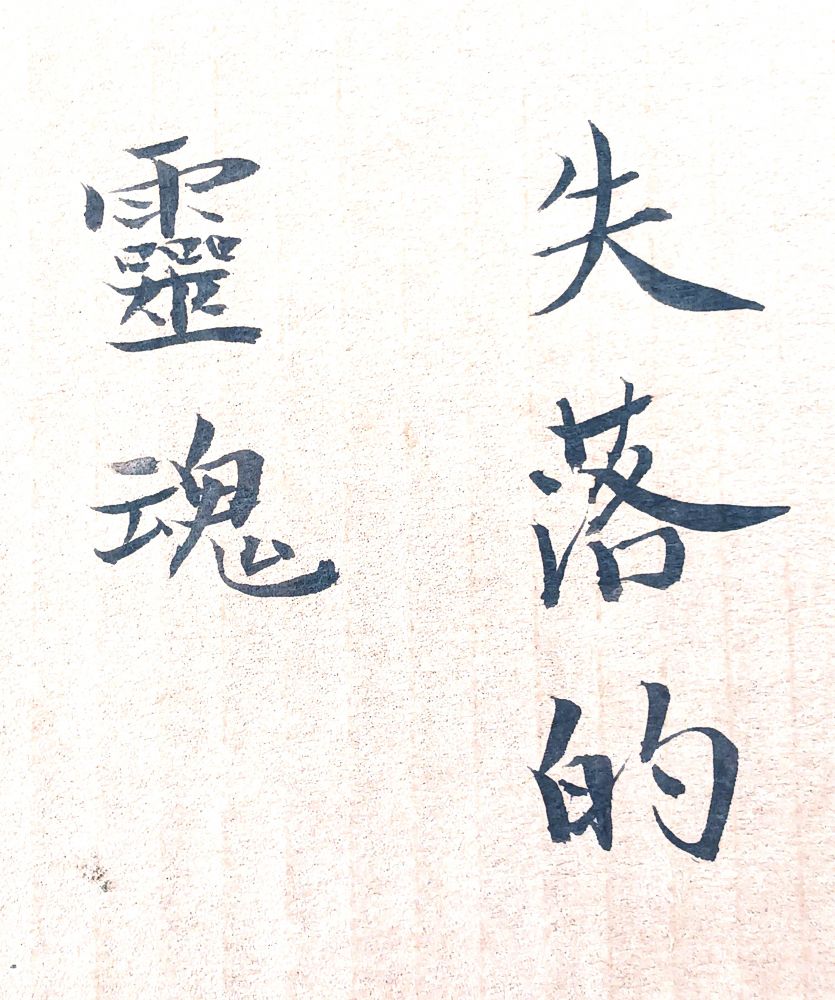 失落的
靈魂